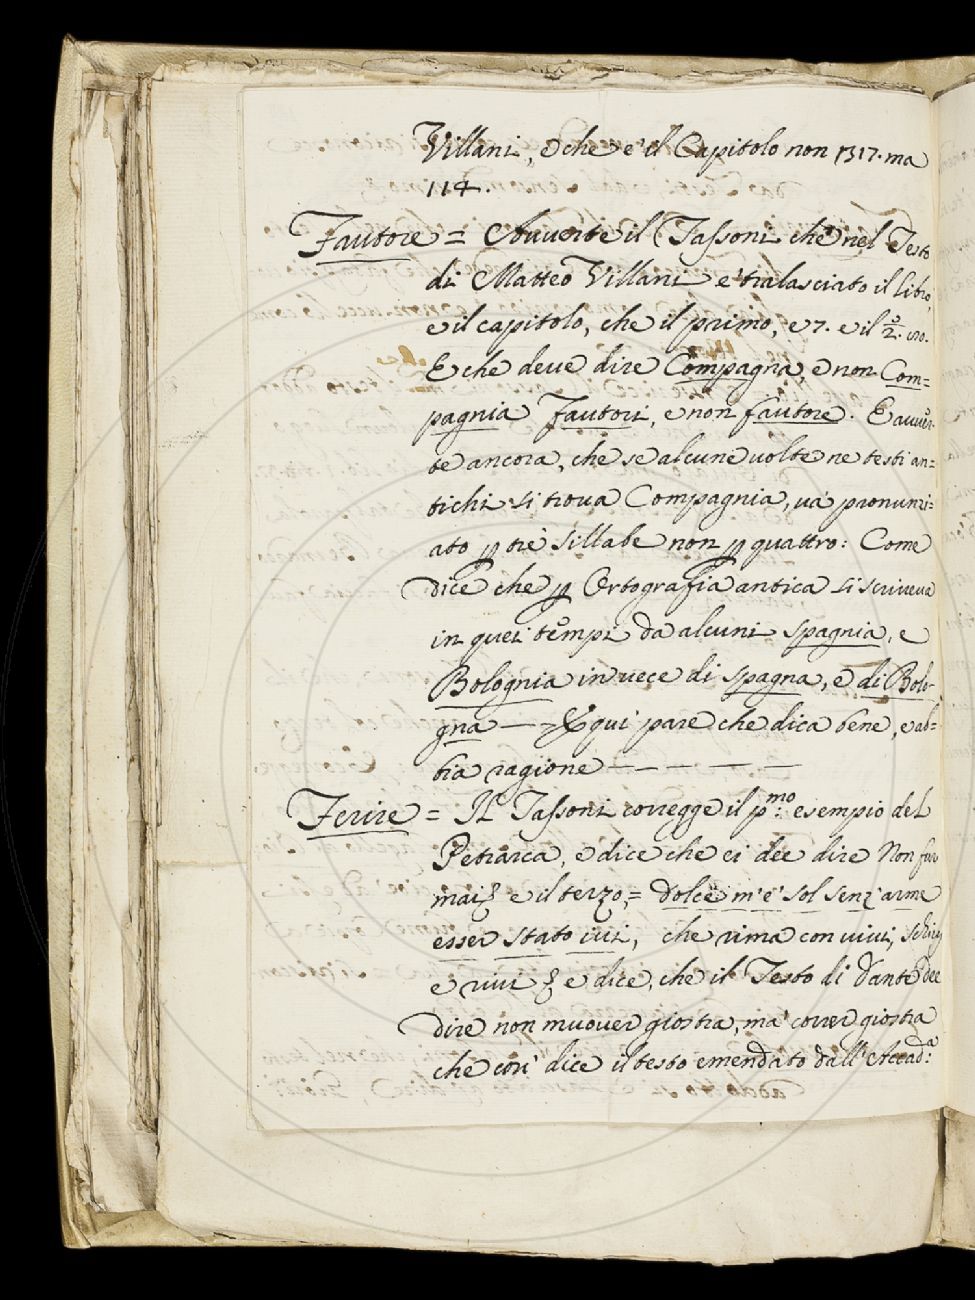 Villani, e che è il Capitolo non 1317. ma
114.
Fautore = Avverte il Tassoni che nel Testo
di Matteo Villani è tralasciato il libro,
e il capitolo, che il primo, e 7. e il 2.
E che deve dire Compagna, e non Com=
pagnia fautori, e non fautore. E avver
te ancora, che se alcune volte ne testi an=
tichi si trova Compagnia, va pronunzi=
ato ꝑ trè sillabe non ꝑ quattro: Come
dice che ꝑ Ortografia antica si scriveva
in quei tempi da alcuni spagnia, e
Bolognia in vece di spagna, e di Bolo-
gna — qui pare che dica bene, e ab=
bia ragione — — — — —
Ferire = Il Tassoni corregge il p.mo esempio del
Petrarca, e dice che ei dee dire Non fur
mai e il terzo,= dolce m'è sol senz'arme
esser stato ivi, che rima con vivi, schivi
e rivi e dice, che il Testo di Dante dee
dire non muover giostra, ma correr giostra
che così dice il testo emendato dall'Accad:a